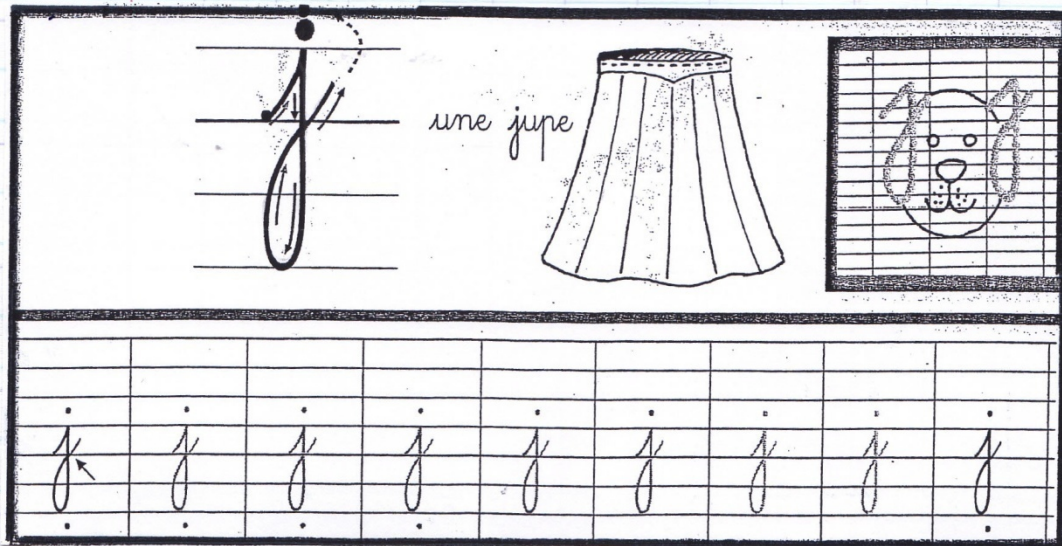 j
une jupe
j j
j j j j j j j j j